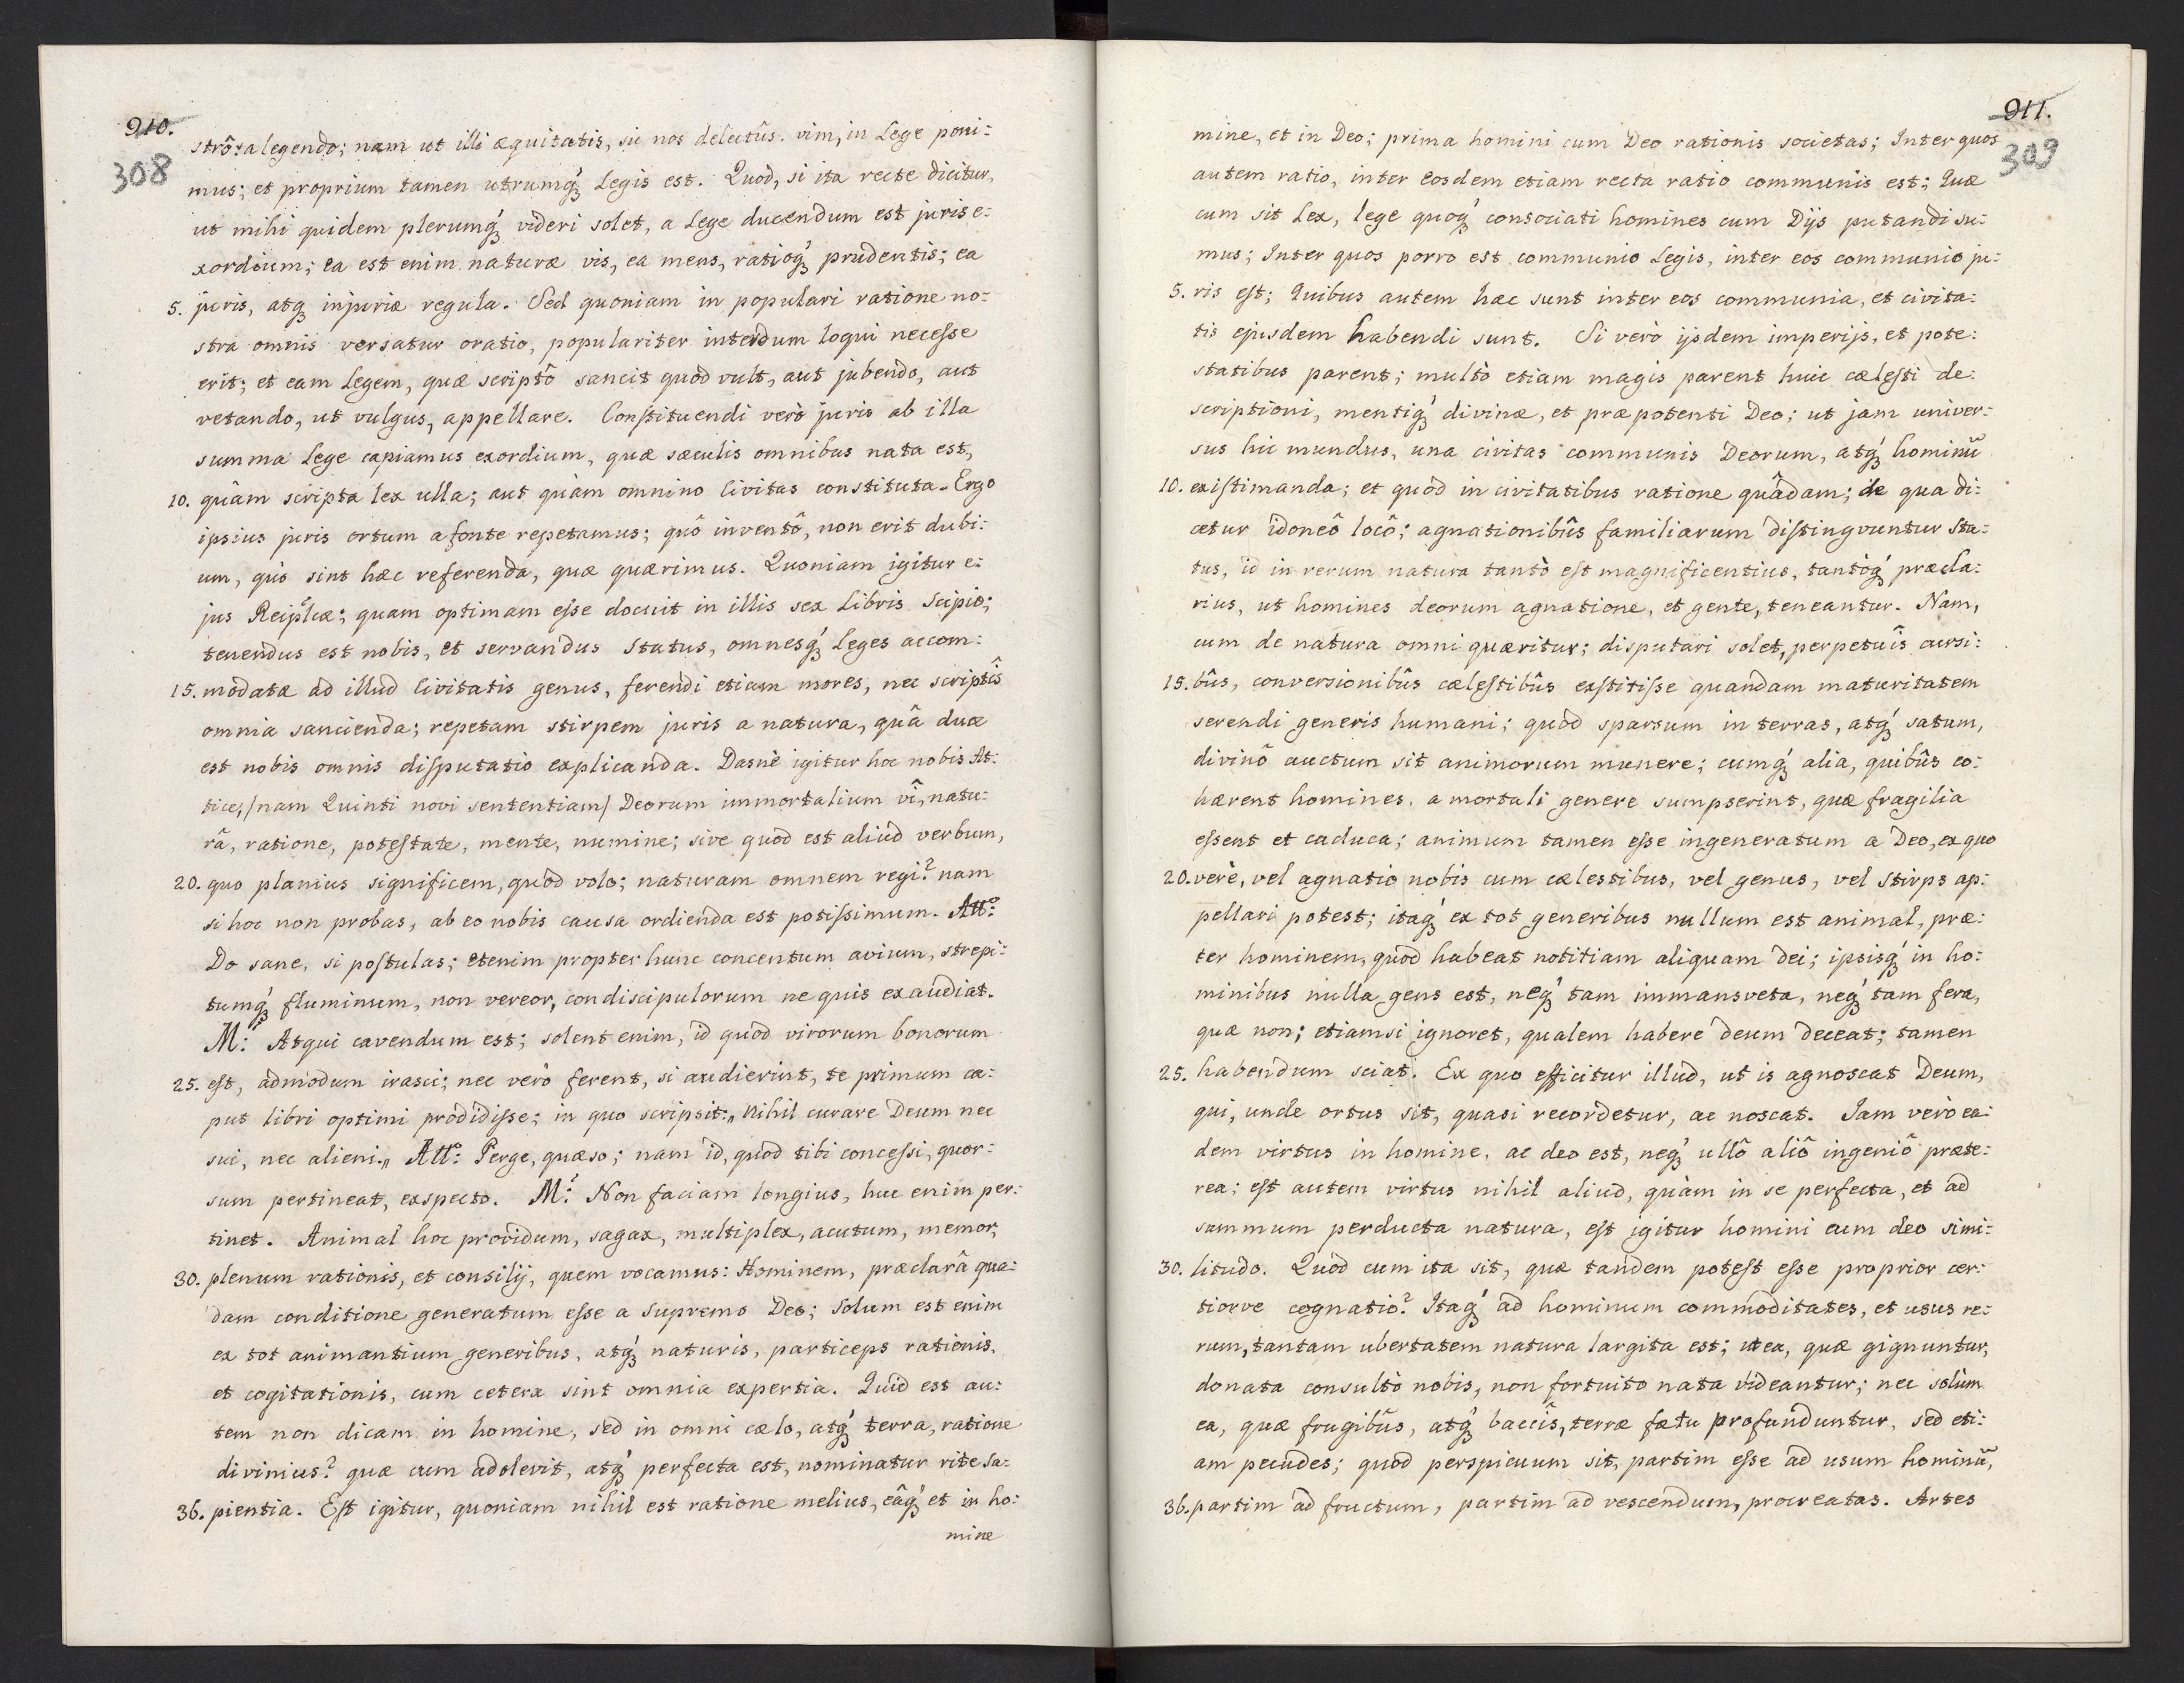 910.
308
strô: a legendo; nam ut illi æquitatis, sic nos delectûs. vim, in Lege poni:
mus; et proprium tamen utrumq́ꝫ Legis est. Quòd, si ita recte dicitur,
ut mihi quidem plerumq́ꝫ videri solet, a Lege ducendum est juris e:
xordium; ea est enim naturæ vis, ea mens, ratioq́ꝫ prudentis; ea
5. juris, atqꝫ injuriæ regula. Sed quoniam in populari ratione no:
stra omnis versatur oratio, populariter interdum loqui necesse
erit; et eam Legem, quæ scriptô sancit quod vult, aut jubendo, aut
vetando, ut vulgus, appellare. Constituendi verò juris ab illa
summa Lege capiamus exordium, quæ sæculis omnibus nata est,
10. quàm scripta lex ulla; aut quàm omnino Civitas constituta. Ergo
ipsius juris ortum a fonte repetamus; quô inventô, non erit dubi:
um, quò sint hæc referenda, quæ quærimus. Quoniam igitur e:
jus Reiplcæ; quam optimam esse docuit in illis sex Libris Scipio;
tenendus est nobis, et servandus Status, omnesq́ꝫ Leges accom:
15. modatæ ad illud Civitatis genus, ferendi etiam mores, nec scriptîs
omnia sancienda; repetam stirpem juris a natura, quâ duæ
est nobis omnis disputatio explicanda. Dasnè igitur hoc nobis At:
tice, /nam Quinti novi sententiam/ Deorum immortalium vî, natu:
râ, ratione, potestate, mente, numine; sive quod est aliud verbum,
20. quo planius significem, quod volo; naturam omnem regi? nam
si hoc non probas, ab eo nobis causa ordienda est potissimum. Att:
Do sane, si postulas; etenim propter hunc concentum avium, strepi:
tumq́ꝫ fluminum, non vereor, condiscipulorum ne quis exaudiat.
M: Atqui cavendum est; solent enim, id quod virorum bonorum
25. est, admodum irasci; nec verò ferent, si audierint, te primum ca:
put libri optimi prodidisse; in quo scripsit: „Nihil curare Deum nec
sui, nec alieni.„ Att: Perge, quæso; nam id, quod tibi concessi, quor:
sum pertineat, exspecto. M: Non faciam longius, huc enim per:
tinet. Animal hoc providum, sagax, multiplex, acutum, memor,
30. plenum rationis, et consilij, quem vocamus: Hominem, præclarâ qua:
dam conditione generatum esse a supremo Deo; Solum est enim
ex tot animantium generibus, atq́ꝫ naturis, particeps rationis,
et cogitationis, cum cetera sint omnia expertia. Quid est au:
tem non dicam in homine, sed in omni cælo, atq́ꝫ terra, ratione
divinius? quæ cum adolevit, atq́ꝫ perfecta est, nominatur rite sa:
36. pientia. Est igitur, quoniam nihil est ratione melius, eâq́ꝫ et in ho:
mine
911.
309
mine, et in Deo; prima homini cum Deo rationis societas; Inter quos
autem ratio, inter eosdem etiam recta ratio communis est; Quæ
cum sit Lex, lege quoq́ꝫ consociati homines cum Dijs putandi su:
mus; Inter quos porro est communio Legis, inter eos communio ju:
5. ris est; Quibus autem hæc sunt inter eos communia, et civita:
tis ejusdem habendi sunt. Si verò ijsdem imperijs, et pote:
statibus parent; multò etiam magis parent huic cælesti de:
scriptioni, mentiq́ꝫ divinæ, et præpotenti Deo; ut jam univer:
sus hic mundus, una civitas communis Deorum, atq́ꝫ hominũ
10. existimanda; et quòd in civitatibus ratione quâdam; de qua di:
cetur idoneô locô; agnationibûs familiarum distingvuntur sta:
tus, id in rerum natura tantò est magnificentius, tantòq́ꝫ præcla:
rius, ut homines deorum agnatione, et gente, teneantur. Nam,
cum de natura omni quæritur; disputari solet, perpetuîs cursi:
15. bûs, conversionibûs cælestibûs exstitisse quandam maturitatem
serendi generis humani; quòd sparsum in terras, atq́ꝫ satum,
divinô auctum sit animorum munere; cumq́ꝫ alia, quibûs co:
hærent homines, a mortali genere sumpserint, quæ fragilia
essent et caduca; animum tamen esse ingeneratum a Deo, ex quo
20. verè, vel agnatio nobis cum cælestibus, vel genus, vel Stirps ap:
pellari potest; itaq́ꝫ ex tot generibus nullum est animal, præ:
ter hominem, quòd habeat notitiam aliquam dei; ipsisq́ꝫ in ho:
minibus nulla gens est, neq́ꝫ tam immansveta, neq́ꝫ tam fera,
quæ non; etiamsi ignoret, qualem habere deum deceat; tamen
25. habendum sciat. Ex quo efficitur illud, ut is agnoscat Deum,
qui, unde ortus sit, quasi recordetur, ac noscat. Jam verò ea:
dem virtus in homine, ac deo est, neq́ꝫ ullô aliô ingeniô præte:
rea; est autem virtus nihil aliud, quàm in se perfecta, et ad
summum perducta natura, est igitur homini cum deo simi:
30. litudo. Quòd cum ita sit, quæ tandem potest esse proprior cer:
tiorve cognatio? Itaq́ꝫ ad hominum commoditates, et usus re:
rum, tantam ubertatem natura largita est; ut ea, quæ gignuntur,
donata consultò nobis, non fortuito nata videantur; nec solùm
ea, quæ frugibûs, atq́ꝫ baccîs, terræ fætu profunduntur, sed eti:
am pecudes; quòd perspicuum sit, partim esse ad usum hominũ,
36. partim ad fructum, partim ad vescendum, procreatas. Artes